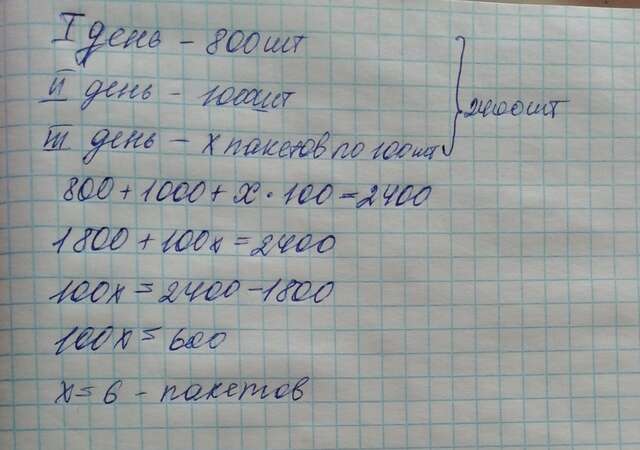 I день - 800шт
II день - 1000шт
III день - х пакетов по 100шт
2400шт
800 + 1000 + х · 100 = 2400
1800 + 100х = 2400
100х = 2400 - 1800
100х = 600
х = 6 - пакетов